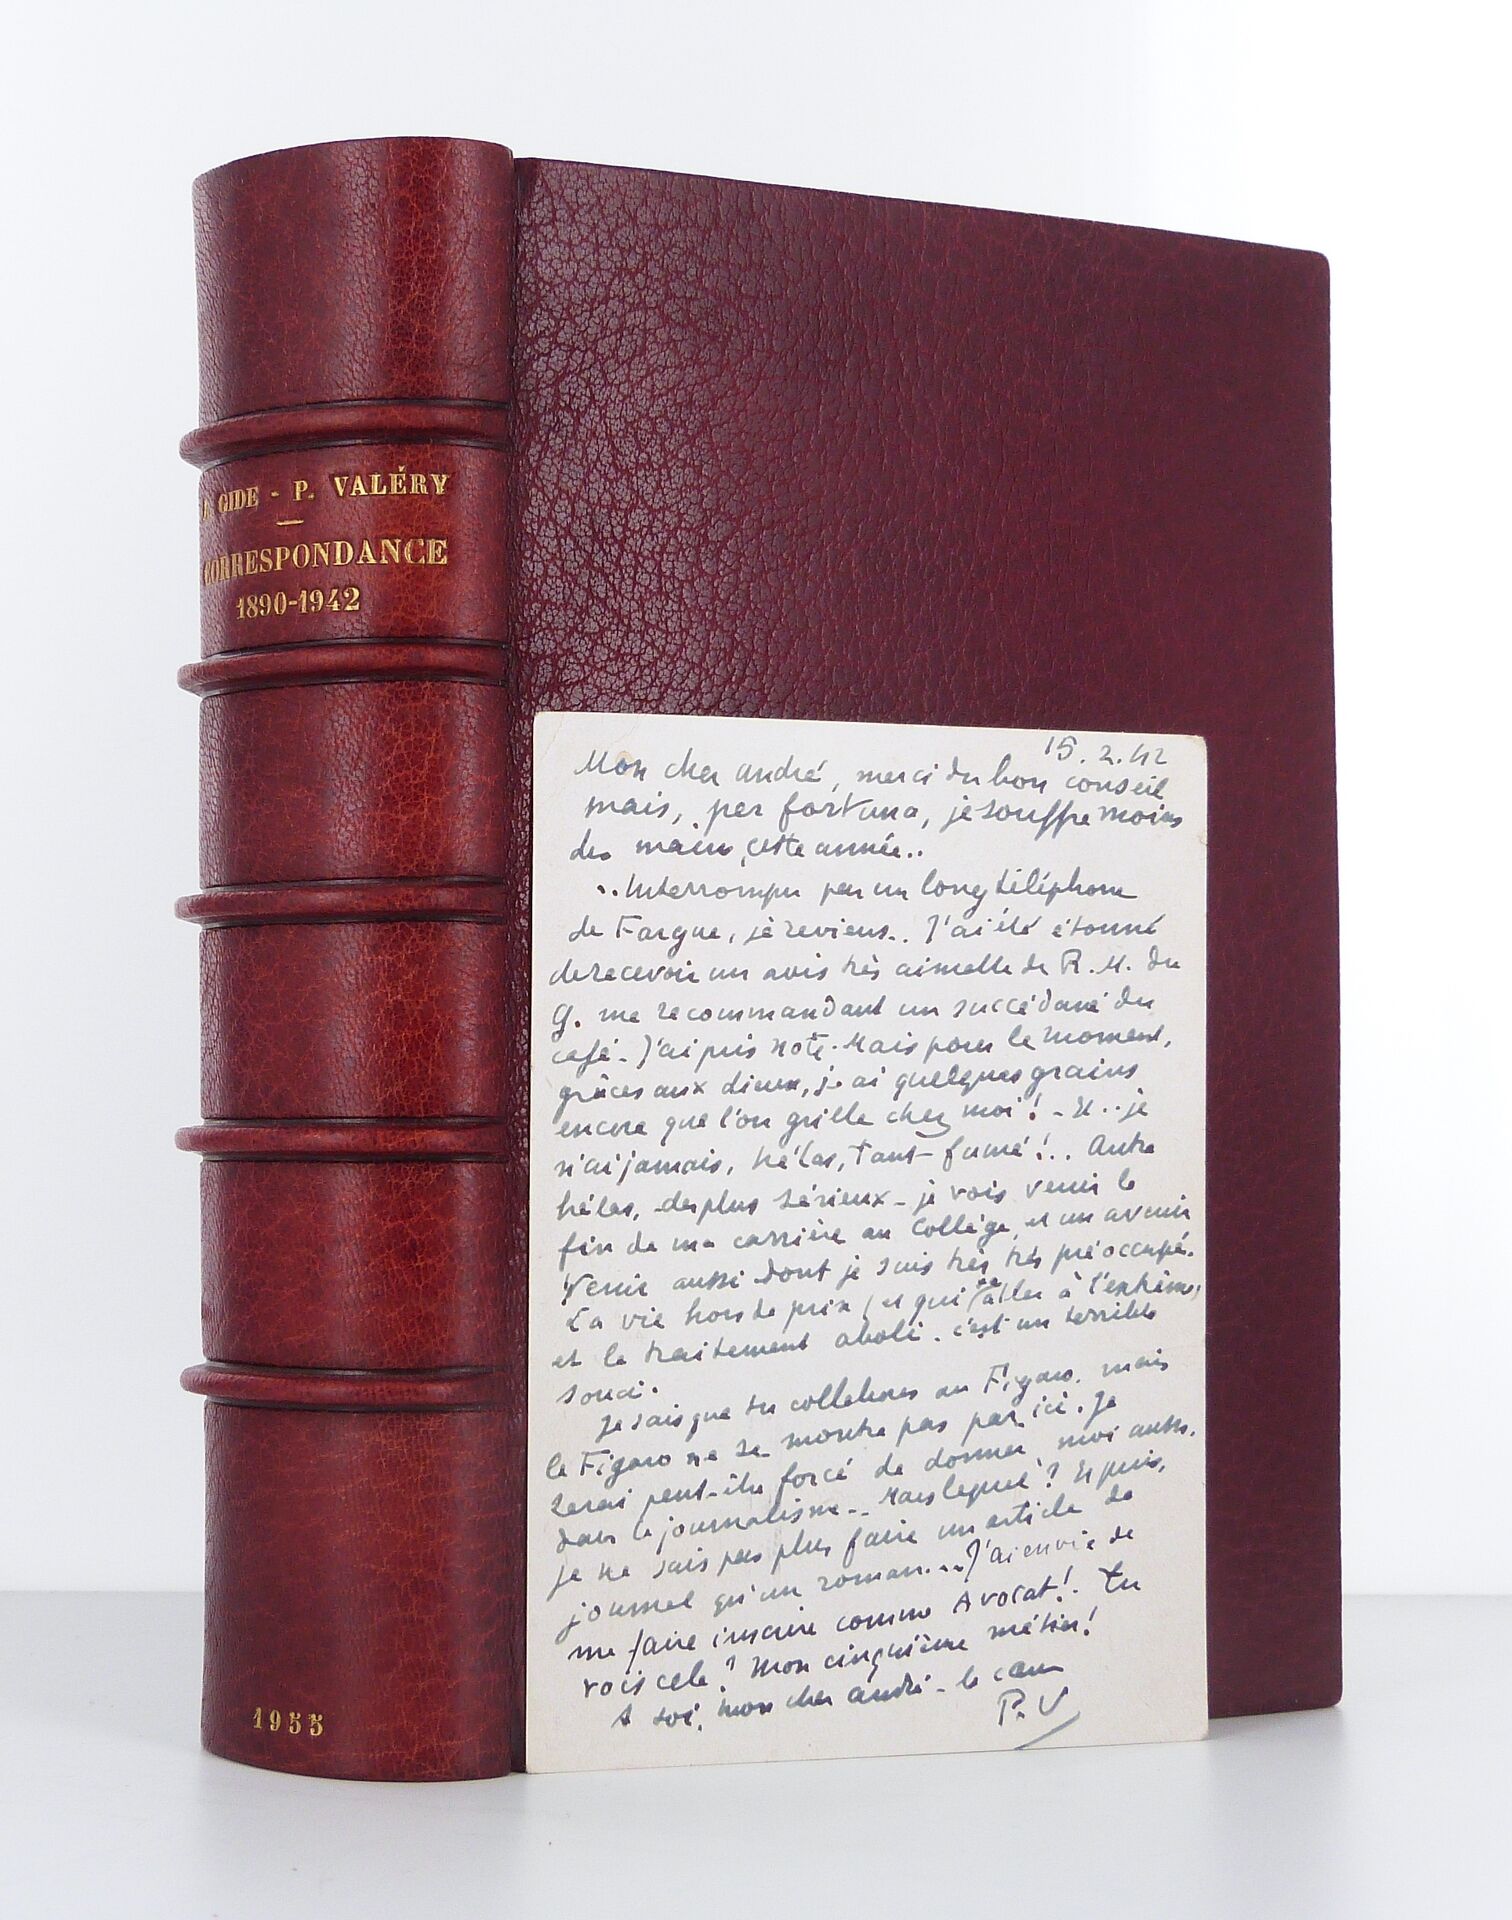 A. GIDE - P. VALÉRY
CORRESPONDANCE
1890-1942
1955
15.2.42
Mon cher André, merci du bon conseil
mais, per fortuna, je souffre moins
des mains cette année..
..Interrompu par un long téléphone
de Fargue, je reviens.. J'ai été étonné
de recevoir un avis très aimable de R. M. du
G. me recommandant un succédané du
café - J'ai pris note. Mais pour le moment,
grâces aux dieux, j'ai quelques grains
encore que l'on grille chez moi! - Et.. je
n'ai jamais, hélas, tant fumé!.. Autre
hélas, des plus sérieux - je vois venir la
fin de ma carrière au Collège, et un avenir
Venir aussi dont je suis très très préoccupé.
La vie hors de prix (et qui va aller à l'extrême)
et le traitement aboli. c'est un terrible
souci.
Je sais que tu collabores au Figaro. mais
le Figaro ne se montre pas par ici. Je
serai peut-être forcé de donner, moi aussi,
dans le journalisme.. Mais lequel? Et puis,
je ne sais pas plus faire un article de
journal qu'un roman... J'ai envie de
me faire inscrire comme Avocat!. Tu
vois cela? Mon cinquième métier!
A toi, mon cher André - le cœur
P. V